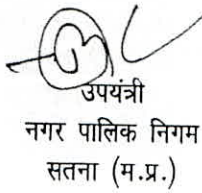 उपयंत्री
नगर पालिक निगम
सतना (म.प्र.)